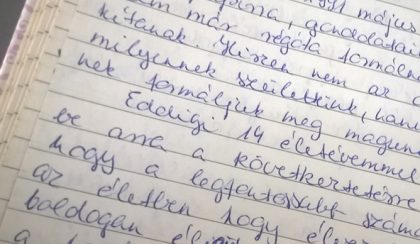 május
gondolatai
már régóta formáló
kitanak. Hiszen nem az
milyennek születtünk, han
nek formáljuk meg magun
Eddigi 14 életévemmel
be arra a következtetésre
hogy a legfontosabb száma
az életben hogy
boldogan
a